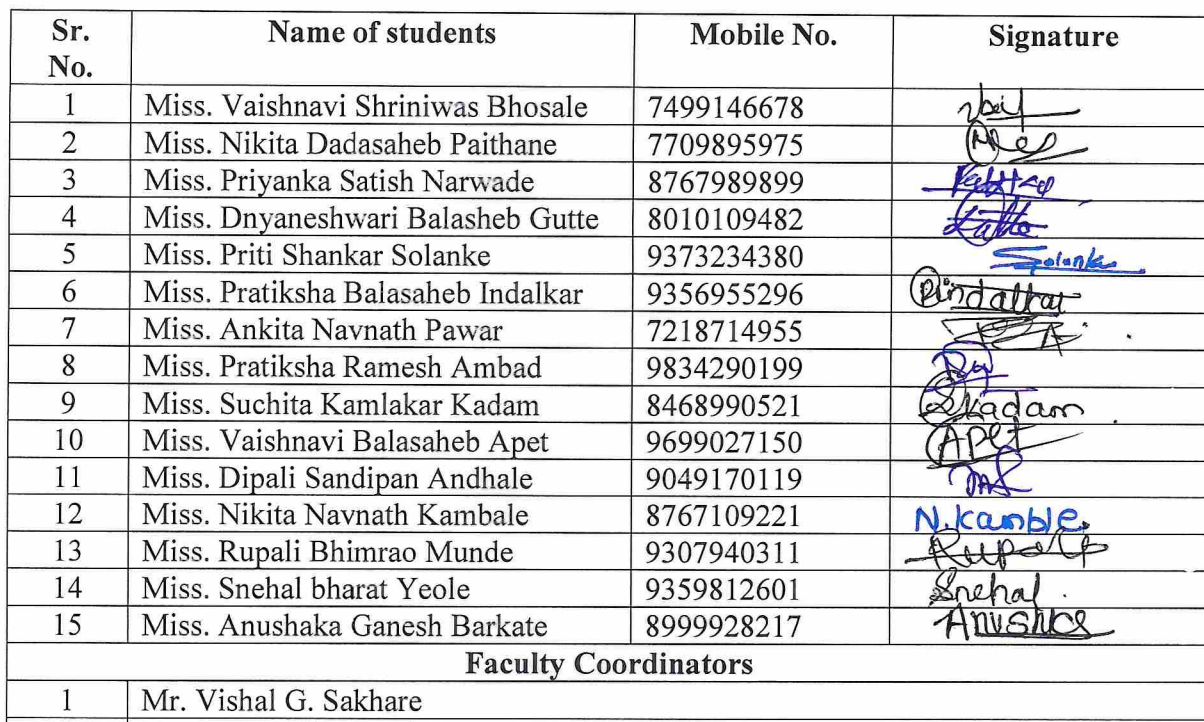 Sr. No. Name of students Mobile No. Signature
1 Miss. Vaishnavi Shriniwas Bhosale 7499146678
2 Miss. Nikita Dadasaheb Paithane 7709895975
3 Miss. Priyanka Satish Narwade 8767989899
4 Miss. Dnyaneshwari Balasheb Gutte 8010109482
5 Miss. Priti Shankar Solanke 9373234380 Solanke
6 Miss. Pratiksha Balasaheb Indalkar 9356955296 Pindalkar
7 Miss. Ankita Navnath Pawar 7218714955
8 Miss. Pratiksha Ramesh Ambad 9834290199
9 Miss. Suchita Kamlakar Kadam 8468990521 Skadam
10 Miss. Vaishnavi Balasaheb Apet 9699027150 Apet
11 Miss. Dipali Sandipan Andhale 9049170119
12 Miss. Nikita Navnath Kambale 8767109221 N.kamble.
13 Miss. Rupali Bhimrao Munde 9307940311 Rupali
14 Miss. Snehal bharat Yeole 9359812601 Snehal
15 Miss. Anushaka Ganesh Barkate 8999928217
Faculty Coordinators
1 Mr. Vishal G. Sakhare